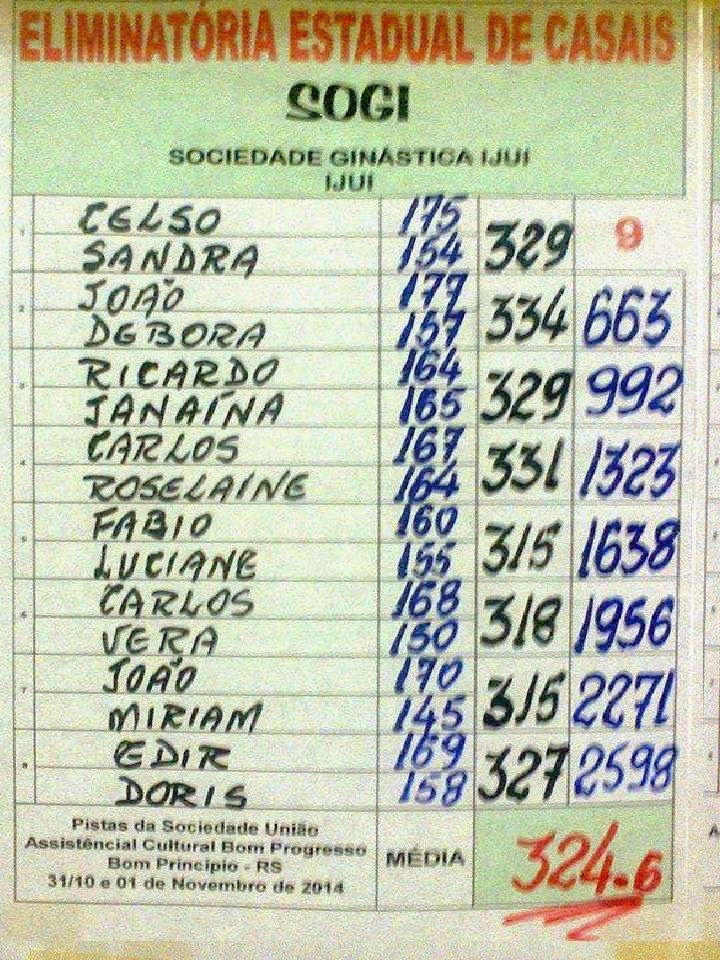 ELIMINATÓRIA ESTADUAL DE CASAIS
SOGI
SOCIEDADE GINÁSTICA IJUI
IJUI
1 CELSO 175 329 9
SANDRA 154
2 JOAÕ 177 334 663
DEBORA 157
3 RICARDO 164 329 992
JANAÍNA 165
4 CARLOS 167 331 1323
ROSELAINE 164
5 FABIO 160 315 1638
LUCIANE 155
6 CARLOS 168 318 1956
VERA 150
7 JOAÕ 170 315 2271
MIRIAM 145
8 EDIR 169 327 2598
DORIS 158
Pistas da Sociedade União
Assistêncial Cultural Bom Progresso
Bom Princípio - RS
31/10 e 01 de Novembro de 2014
MÉDIA 324.6